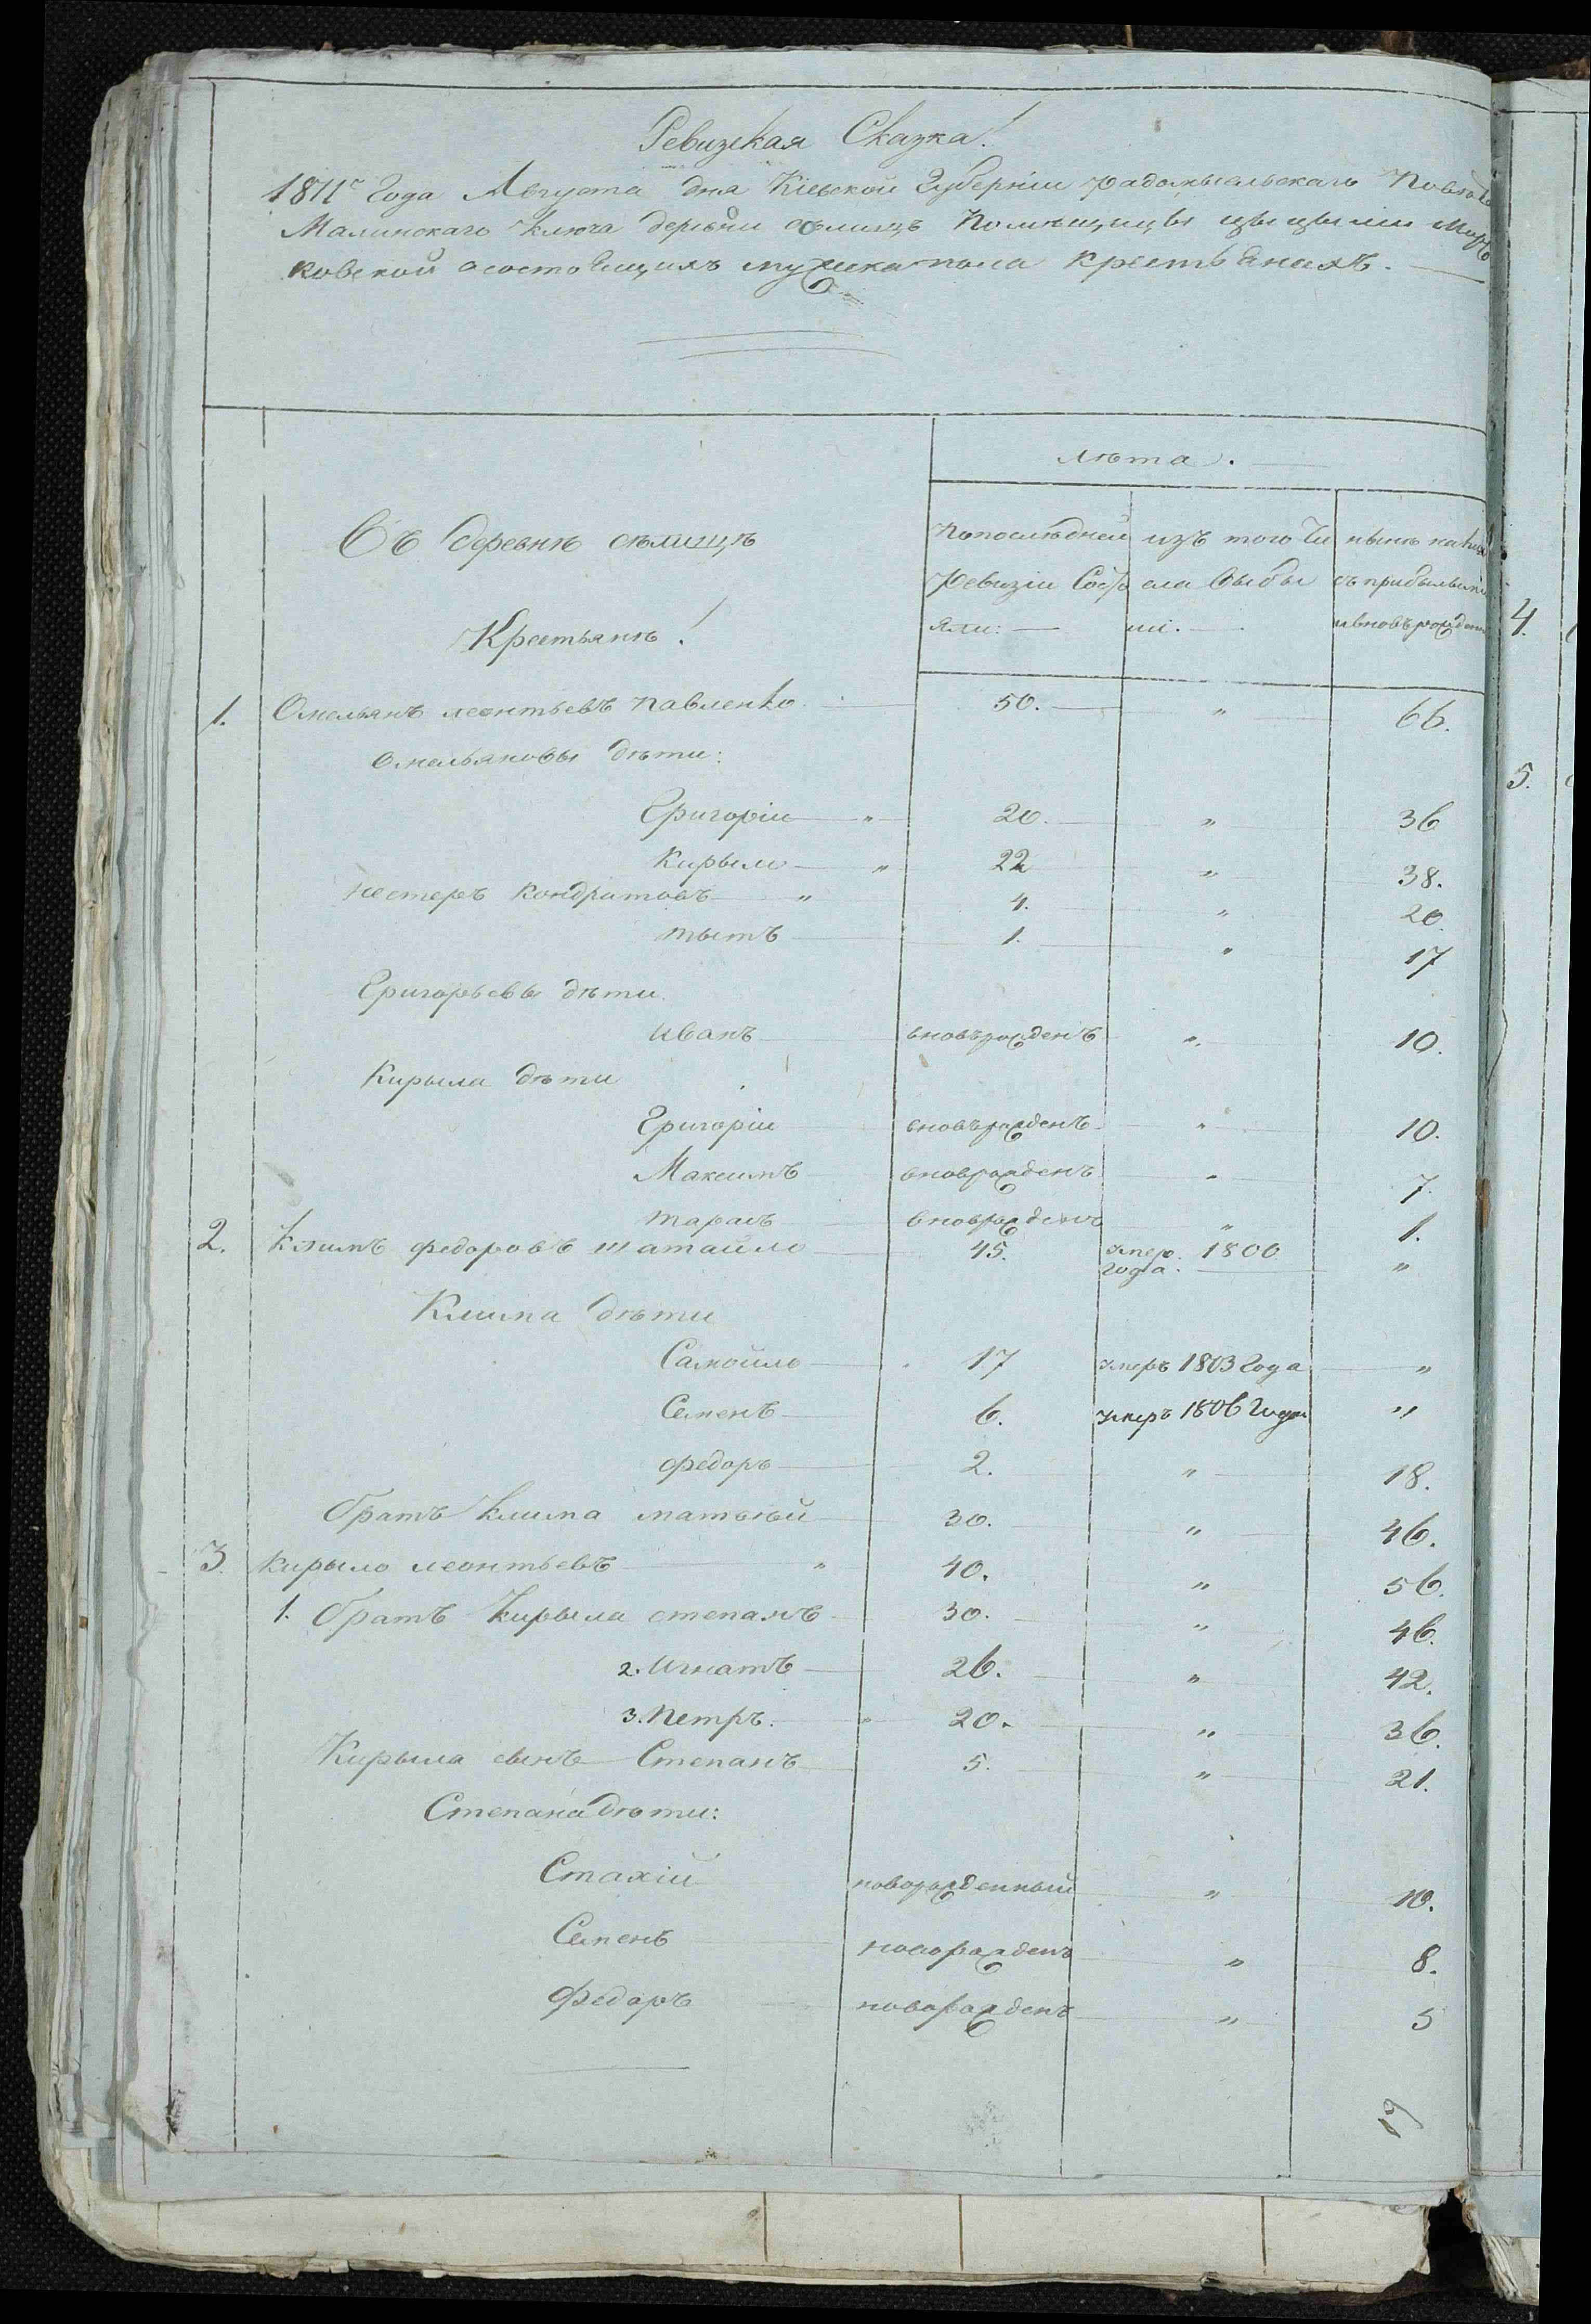 Ревизская Сказка!
1811го Года Августа дня Кіевской Губерніи Радомысльскаго Повѣта
Малинскаго Ключа деревни селищъ Помѣщицы
ковской осостоящихъ мужеска пола крестьянахъ.
лѣта.
Въ деревнѣ селищѣ
Попослѣдней изъ того Чи нынѣ на лицо
Ревизіи Состо сла Выбы съ прибылыми
яли: ли. ивновъ рожден
Крестьянѣ!
1. Омельянъ леонтьевъ павленко 50. " 66.
Омельяновы дѣти:
Григорій " 20. " 36
Кирыло " 22 " 38.
Нестеръ Кондратовъ " 4. " 20.
тытъ 1. " 17
Григорьевы дѣти
Иванъ вновърожденъ " 10.
Кирыла дѣти
Григорій вновърожденъ " 10.
Максимъ вноврожденъ " 7.
тарасъ вноврожденъ " 1.
2. Климъ федоровъ шатайло 45. умер. 1800 года. "
Клима дѣти
Самойло 17 умеръ 1803 Года "
Семенъ 6. умеръ 1806 Года "
федоръ 2. " 18.
братъ Клима матвѣй 30. " 46.
3. Кирыло леонтьевъ " 40. " 56.
1. братъ Кирыла степанъ 30. " 46.
2. Игнатъ 26. " 42.
3. Петръ. 20. " 36.
Кирыла сынъ Степанъ 5. " 21.
Степана дѣти:
Стахій новорожденный " 10.
Семенъ новорожденъ " 8.
Федоръ новорожденъ " 5
19
4.
5.